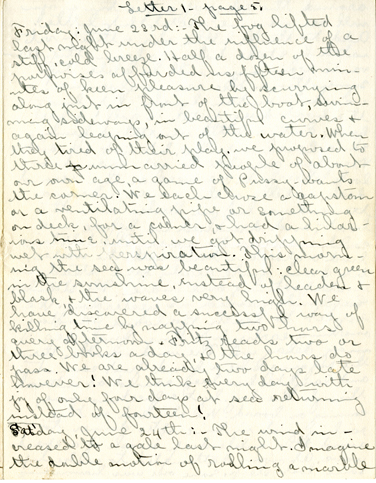 Letter 1. page 5.
Friday, June 23rd:- The fog lifted
last night under the influence of a
stiff, cold breeze. Half a dozen of the
porpoises afforded us fifteen min-
utes of keen pleasure by scurrying
along just in front of the boat, swim-
ming sideways, in beautiful curves &
again leaping out of the water. When
they tired of their play, we proposed to
three unmarried people of about
our own age a game of Pussy-wants
the corner. We each chose a capstan
or a ventilating pipe or something
on deck, for a corner, & had a hilar-
ious time, until we got dripping
wet with perspiration. This morn-
ing the sea was beautiful: clear green
in the sunshine, instead of leaden &
black, & the waves very high. We
have discovered a successful way of
killing time by napping two hours
every afternoon. Fritz reads two or
three books a day, & the hours do
pass. We are already two days late
however! We think every day with
joy of only four days at sea returning
instead of fourteen!
Sat'day, June 24th:- The wind in-
creased to a gale last night. Imagine
the noble motion of rolling a marble